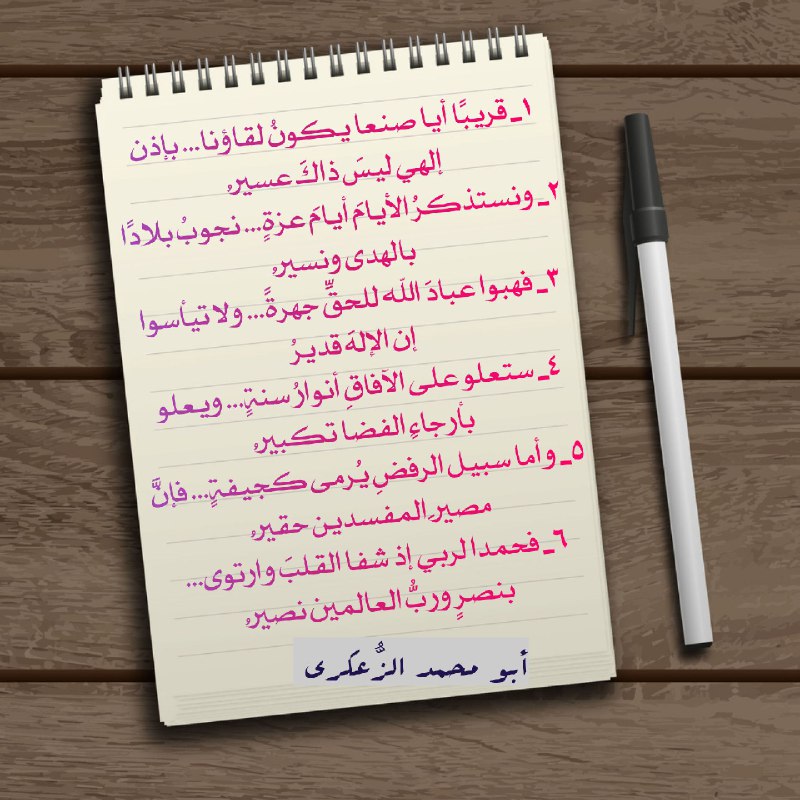 ١ـ قريبًا أيا صنعا يكونُ لقاؤنا... بإذن
إلهي ليسَ ذاكَ عسيرُ
٢ـ ونستذكرُ الأيامَ أيامَ عزةٍ... نجوبُ بلادًا
بالهدى ونسيرُ
٣ـ فهبوا عبادَ الله للحقِّ جهرةً... ولا تيأسوا
إن الإلهَ قديرُ
٤ـ ستعلو على الآفاقِ أنوارُ سنةٍ... ويعلو
بأرجاءِ الفضا تكبيرُ
٥ـ وأما سبيل الرفضِ يُرمى كجيفةٍ... فإنَّ
مصير المفسدين حقيرُ
٦ـ فحمدا لربي إذ شفا القلبَ وارتوى...
بنصرٍ وربُّ العالمين نصيرُ
أبو محمد الزُّعكري